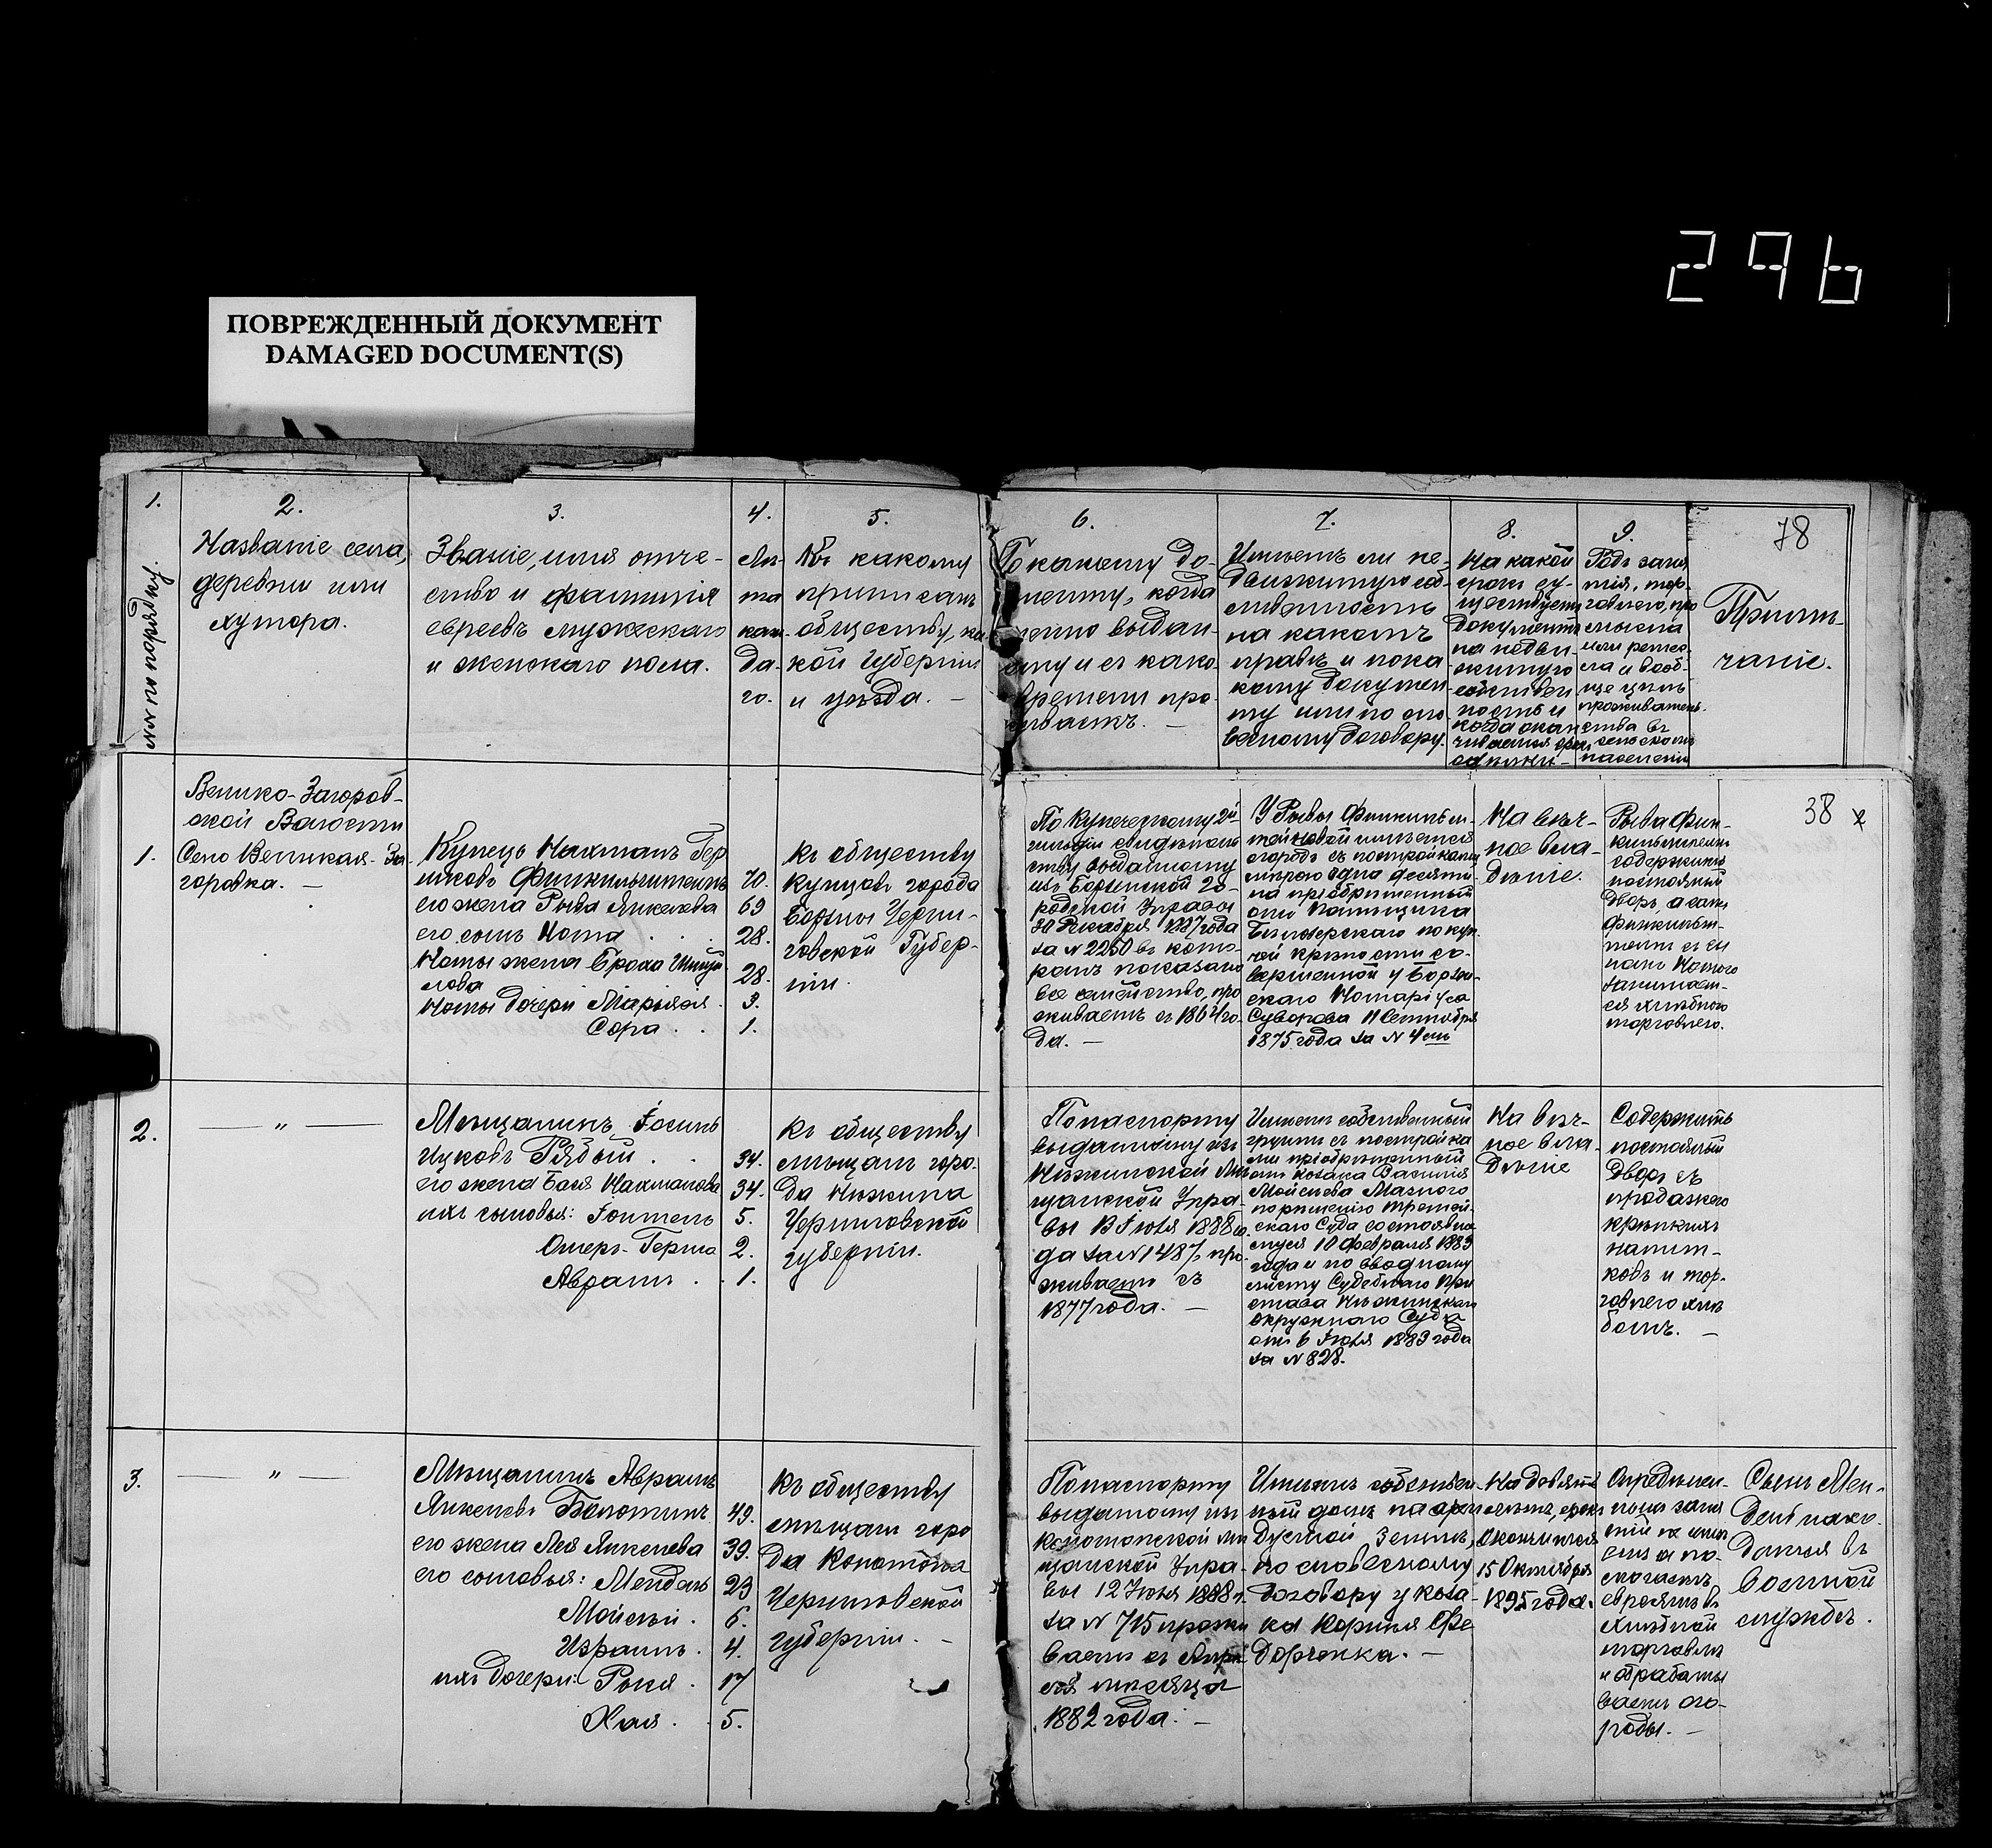 296
ПОВРЕЖДЕННЫЙ ДОКУМЕНТ
DAMAGED DOCUMENT(S)
1.
№№ по порядку.
2.
Названіе села,
деревни или
хутора.
3.
Званіе, имя отче-
ство и фамилія
евреевъ мужескаго
и женскаго пола.
4.
Лѣ-
та
каж-
да-
го.
5.
Къ какому
приписанъ
обществу, ка
кой Губерніи
и уѣзда. —
6.
По какому до-
менту, когда
выдан-
ому и съ како
времени про-
живаетъ. —
7.
Имѣетъ ли не-
движимую соб-
ственность
на какомъ
правѣ и по ка
кому докумен
ту или по сло-
весному договору.
8.
На какой
срокъ су-
ществуетъ
документъ
на недви-
жимую
собствен
ность и
когда окан
чивается срок
9.
Родъ заня
тія, тор-
говлею, про
мысла
или ремес-
ла и вооб-
ще цѣль
проживатель-
ства въ
сельскомъ
населеніи
78
Примѣ-
чаніе.
1.
Велико-Загоров-
ской Волости
Село Великая-За
горовка. —
Купецъ Нахманъ Гер
шковъ Финкильштейнъ 70.
его жена Рыва Янкелева 69
его сынъ Нота . . . 28.
Ноты жена Броха Шмуй
лова 28.
Ноты дочери Марьяся . 3.
Сора . . 1.
Къ обществу
купцовъ города
Борзны Черни-
говской Губер-
ніи.
По купеческому 2й
гильдіи свидѣтель
ству выданному
изъ Борзенской Го-
родской Управы
30 Декабря 1887 года
за № 2250 въ кото-
ромъ показано
все семейство, про
живаетъ съ 1864 го-
да. —
У Рывы Финкильш-
тейновой имѣется
огородъ съ постройками
мѣрою одна десяти-
на пріобрѣтенный
отъ
по куп
чей крѣпости со-
вершенной у Борзен-
скаго Нотаріуса
Суворова 11 Сентября
1875 года за № 4мъ
На вѣч-
ное вла-
дѣніе.
Рыва Фин-
кильштейнъ
содержитъ
постоялый
дворъ, а самъ
Финкильш-
тейнъ съ сы
номъ Нотою
занимает-
ся хлѣбною
торговлею.
38
2.
— " —
Мѣщанинъ Іосипъ
Ицковъ Рябый . . 34.
его жена Бася Нахманова 34.
ихъ сыновья: 5.
2.
Аврамъ . . 1.
Къ обществу
мѣщанъ горо-
да Нѣжина
Черниговской
губерніи.
По паспорту
выданному изъ
Нѣжинской Мѣ
щанской Упра-
вы 13 Іюля 1888 го
да за № 1487, про
живаетъ съ
1877 года. —
Имѣетъ собственный
грунтъ съ постройка
ми пріобрѣтенный
отъ козака Василія
Мойсеева Мазного
по рѣшенію Третей-
скаго Суда состоявша
гося 10 февраля 1883
года и по вводному
листу Судебнаго При
става Нѣжинскаго
Окружнаго Суда
отъ 6 Іюля 1883 года
за № 828.
На вѣч-
ное вла-
дѣніе
Содержитъ
постоялый
дворъ съ
продажею
крѣпкихъ
напит-
ковъ и тор-
говлею хлѣ
бомъ. —
3.
— " —
Мѣщанинъ Аврамъ
Янкелевъ Болотинъ 49.
его жена Лея Янкелева 39.
его сыновья: Мендель 23
Мойсей . 6.
Израиль . 4.
ихъ дочери: Роня . 17
Хая . . 5.
Къ обществу
мѣщанъ горо
да Конотопа
Черниговской
губерніи. —
По паспорту
выданному изъ
Конотопской мѣ
щанской Упра-
вы 12 Іюня 1888 г.
за № 715 прожи
ваетъ съ Апрѣ
ля мѣсяца
1882 года. —
Имѣетъ собствен
ный домъ на арен
дуемой землѣ,
по словесному
договору у коза
ка Корнія Фе
дорченка. —
На девять
лѣтъ, срок
окончится
15 Октября
1895 года.
Опредѣлен-
ныхъ заня
тій не имѣ
етъ а по-
могаетъ
евреямъ въ
хлѣбной
торговлѣ
и обрабаты
ваетъ ого-
роды. —
Сынъ Мен-
дель нахо-
дится въ
военной
службѣ.